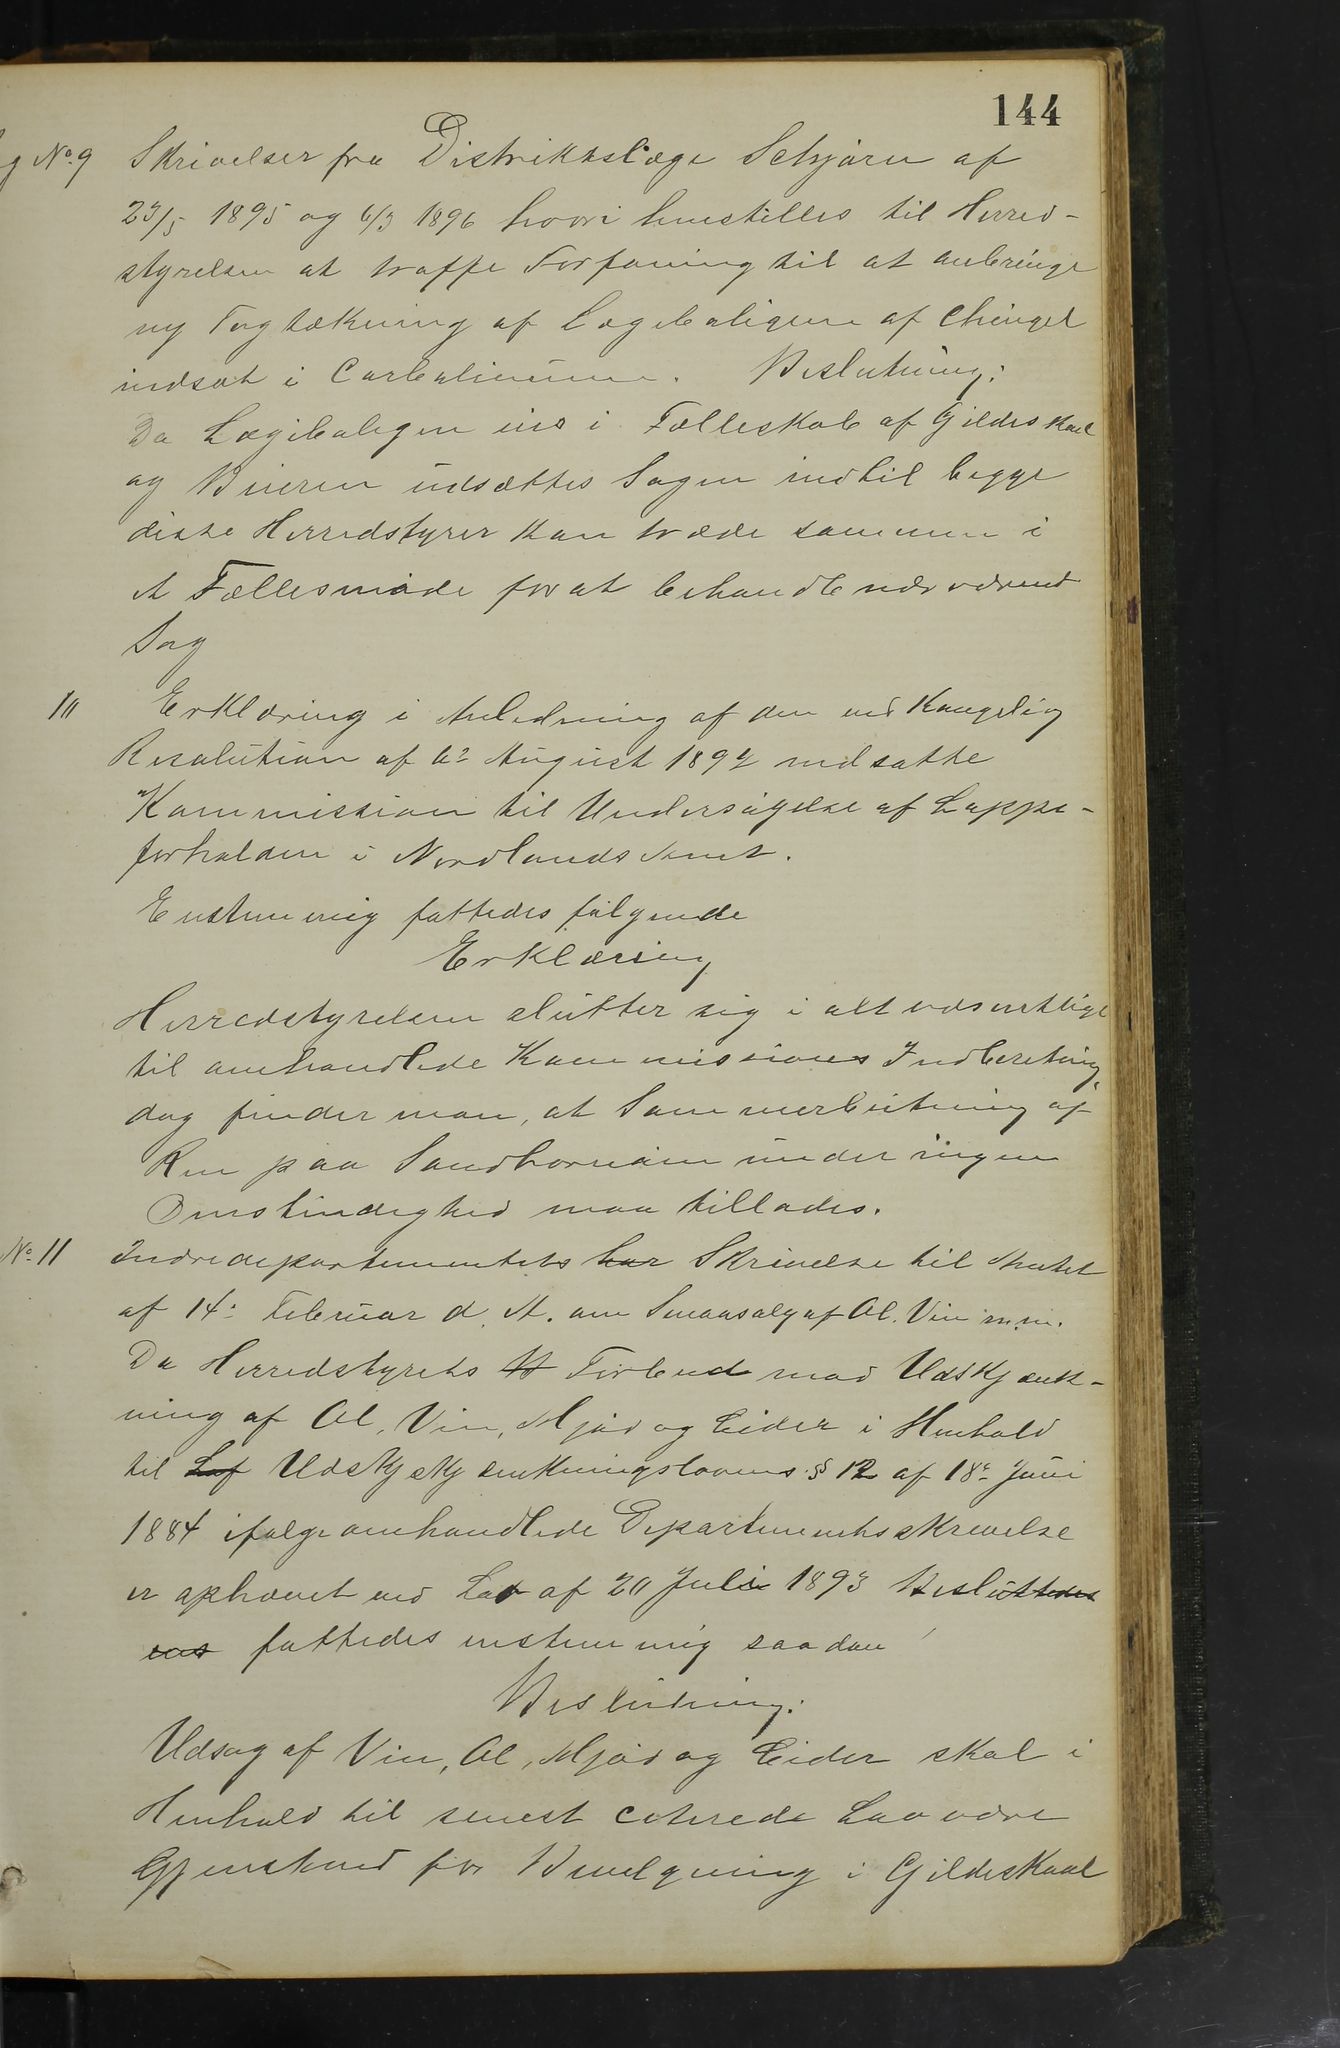 144
g No. 9 Skrivelser fra Distriktslæge Schjørn af
23/5 1895 og 6/3 1896 hvori henstilles til Herred-
styrelsen at træffe Forføining til at anbringe
ny Tagtækning af Lægeboligen af Chingel
indsat i Carbolineum. Beslutning:
Da Lægeboligen eies i Fælleskab af Gildeskaal
og Beieren udsættes Sagen indtil begge
disse Herredstyrer kan træde sammen i
et Fællesmøde for at behandle nærværende
Sag
10 Erklæring i Anledning af den ved Kongelig
Resolution af 6te August 1892 nedsatte
Kommission til Undersøgelse af Lappe-
forholdene i Nordlands Amt.
Enstemmig fattedes følgende
Erklæring
Herredstyrelsen slutter sig i alt væsentlige
til omhandlede Kommissions Indberetning,
dog finder man, at Sommerbeitning af
Ren paa Sandhornøen under ingen
Omstændighed maa tillades.
No. 11 Indredepartementets har Skrivelse til Amtet
af 14de Februar d. A. om Smaasalg af Øl. Vin m.m.
Da Herredstyrets Forbud mod Udskjænk-
ning af Øl, Vin, Mjød og Cider i Henhold
til Lof Udskjskjænkningslovens § 12 af 18de Juni
1884 ifølge omhandlede Departementsskrivelse
er ophævet ved Lov af 20 Juli 1893 Besluttedes
ens fattedes enstemmig saadan
Beslutning:
Udsag af Vin, Øl, Mjød og Cider skal i
Henhold til senest citerede Lov være
Gjenstand for Bevilgning i Gildeskaal